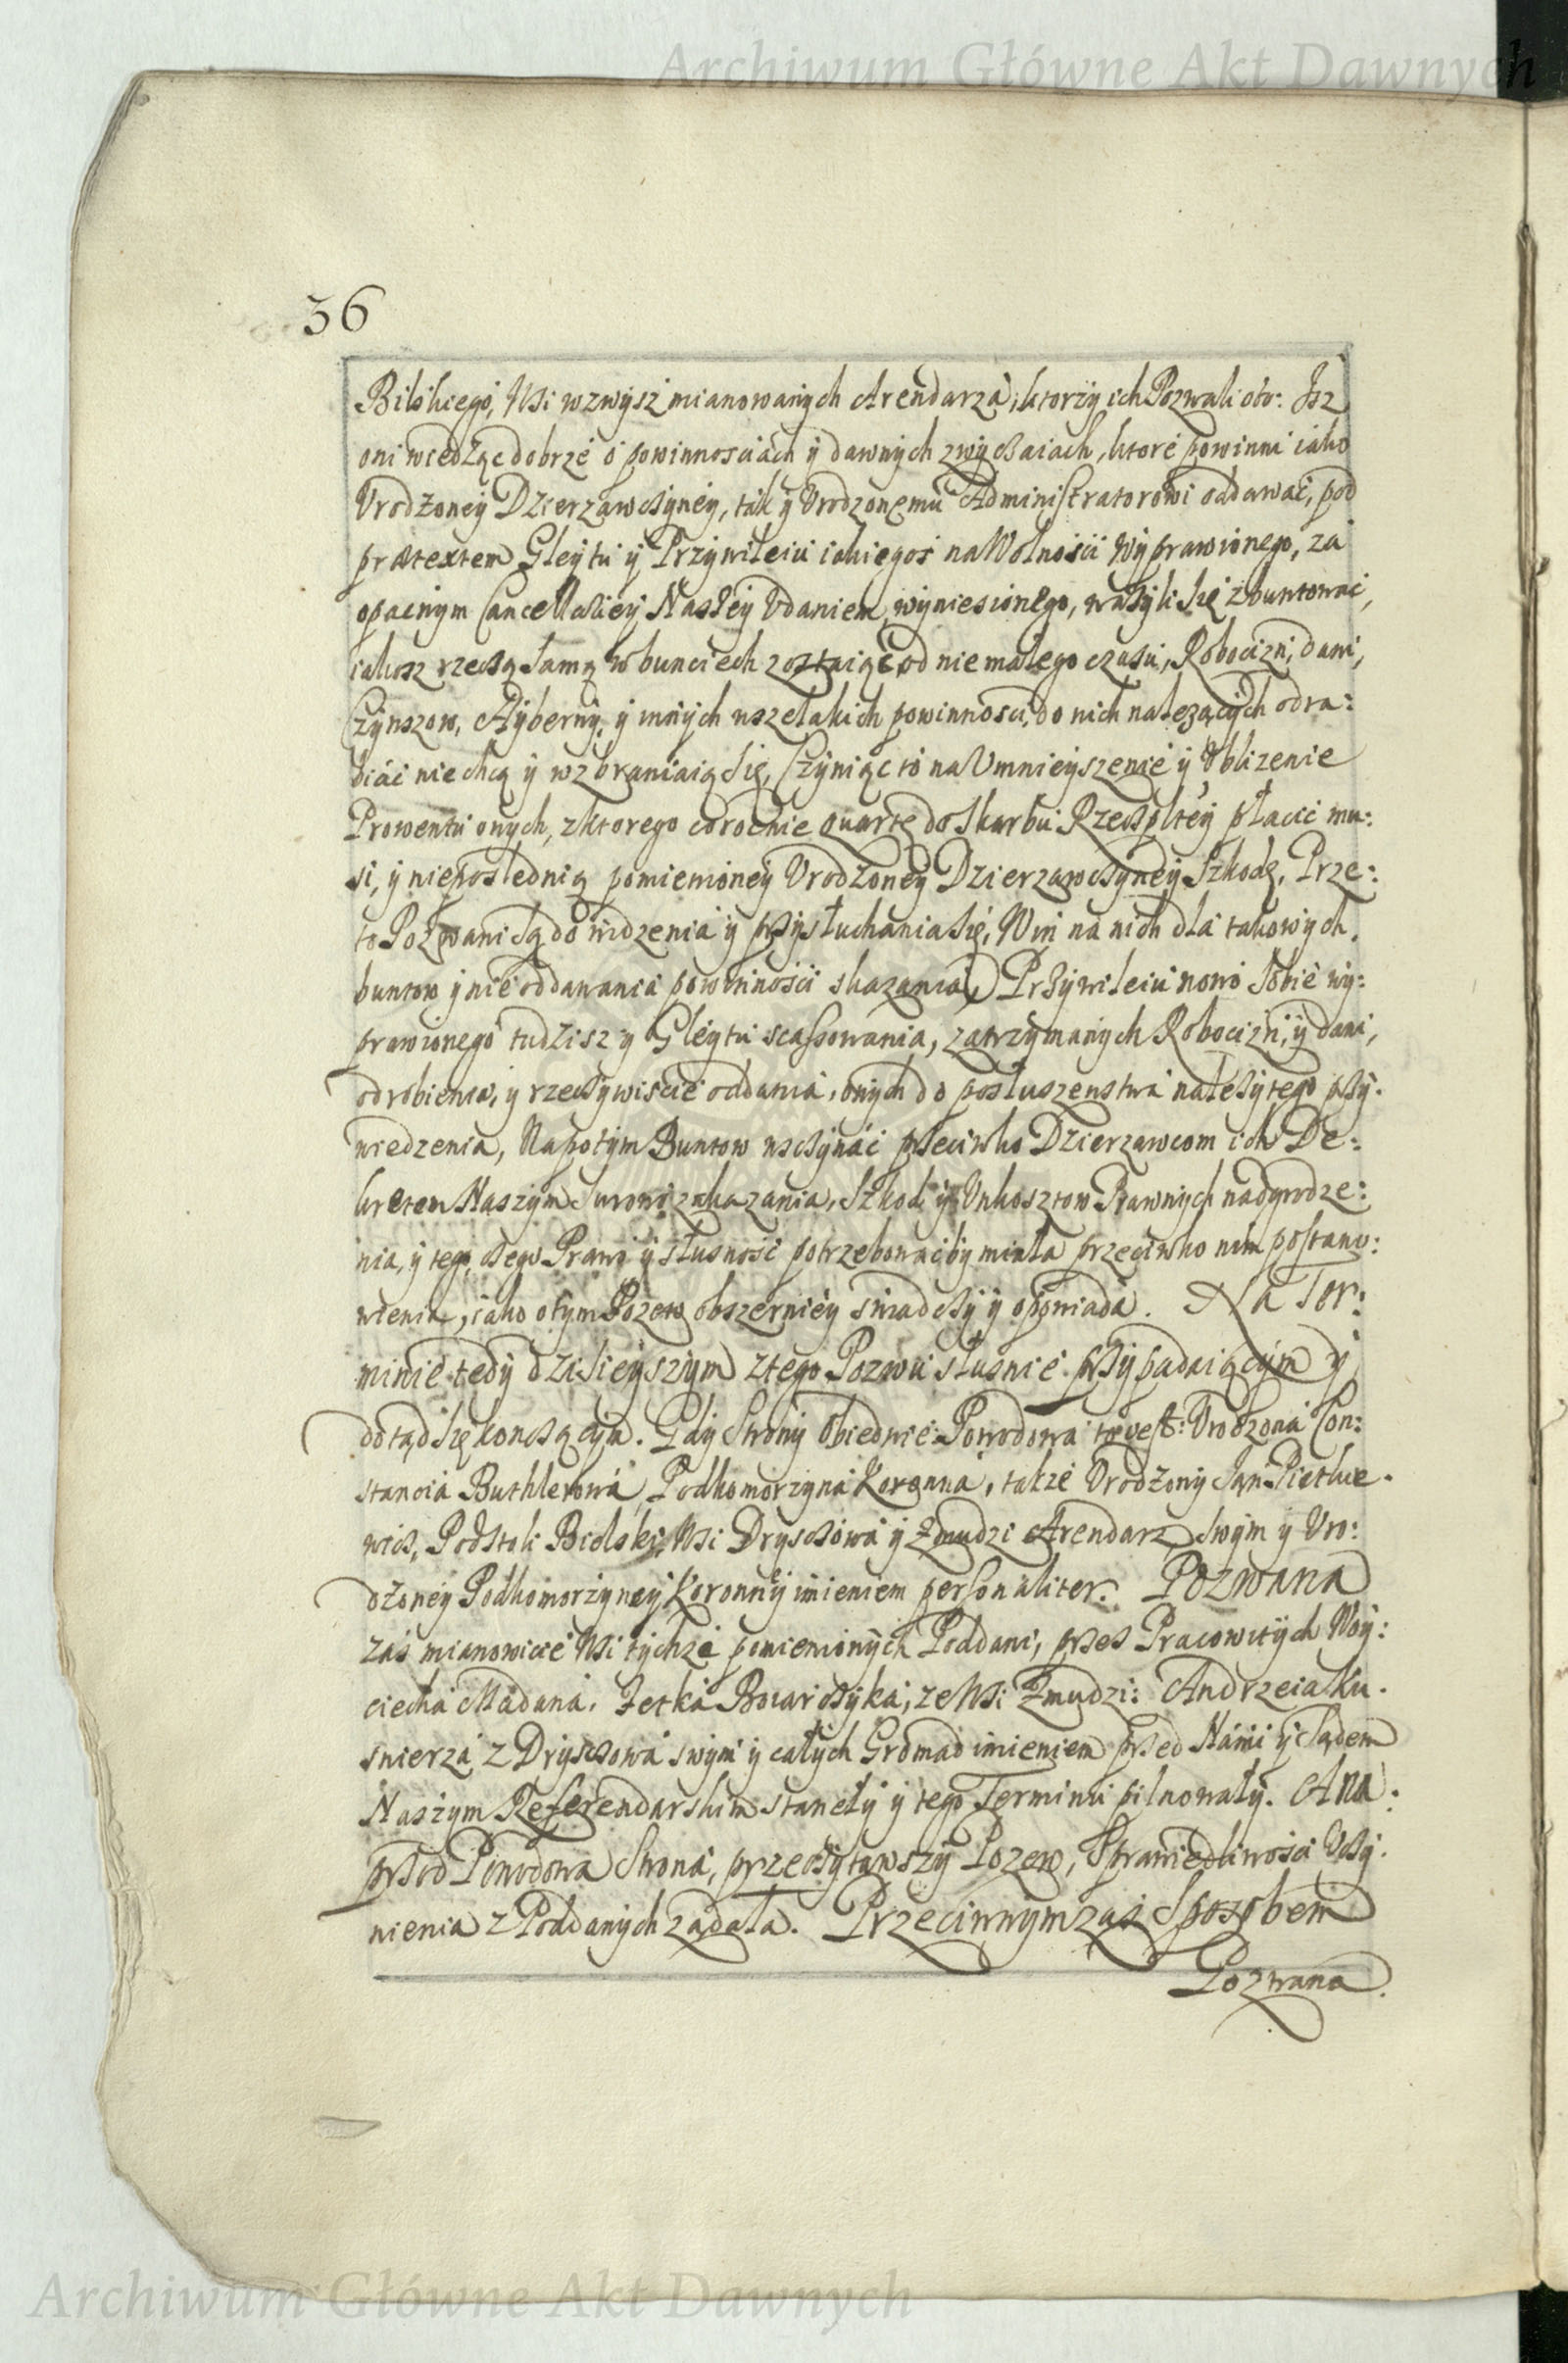 Archiwum Główne Akt Dawnych
36
Bilskiego, Wsi wzwysz mianowanych Arendarza, ktorzy ich Pozwali oto: Isz
oni wiedząc dobrze o powinnosciach y dawnych zwyczaiach, ktore powinni iako
Vrodzoney Dzierzawczyney, tak y Vrodzonemu Administratorowi oddawać, pod
prætextem Gleytu y Przywileiu iakiegoś na Wolności wyprawionego, za
opacznym Cancellariey Naszey Vdaniem, wyniesionego, ważyli się zbuntować,
iakosz rzeczą samą w bunciech zostaiąc od niemałego czasu, Robocizn, dani,
Czynszow, Hyberny, y innych wszelakich powinności, do nich należących odra:
biáć niechcą y wzbraniaią się, Czyniąc to na Vmnieyszenie y Vbliżenie
Prowentu onych, z ktorego corocznie quartę do Skarbu Rzeczpltey płacić mu:
si, y nieposlednią pomienioney Vrodzoney Dzierzawczyney Szkodę. Prze:
to Pozwani są do widzenia y przysłuchania się, Win na nich dla takowych
buntow y nie oddawania powinności skazania, Przywileiu nowo sobie wy:
prawionego tudzisz y Gleytu scassowania, zatrzymanych Robocizn, y dani,
odrobienia, y rzeczywiście oddania, onych do posłuszenstwa należytego przy:
wiedzenia, Napotym Buntow wsczynáć przeciwko Dzierzawcom ich De:
kretem Naszym Surowo zakazania, Szkod y Vnkosztow Prawnych nadgrodze:
nia, y tego, czego Prawo y słusność potrzebować by miała przeciwko nim postano:
wienia, iako o tym Pozew obszerniey świadczy y opowiada. Na Ter:
minie tedy dzisieyszym z tego Pozwu słusnie przypadaiącym y
dotąd się konczącym. Gdy Strony Obiedwie Powodowa to iest: Vrodzona Con:
stancia Buthlerowa, Podkomorzyna Koronna, także Vrodzony Jan Pietkie:
wicz, Podstoli Bielski, Wsi Dryszczowa y Zmudzi Arendarz swym y Vro:
dzoney Podkomorzyney Koronney imieniem personaliter. Pozwana
zaś mianowicie Wsi tychże pomienionych Poddani, przez Pracowitych Woy:
ciecha Madana, Fecka Bocarczyka, ze Wsi Zmudzi: Andrzeia Ku:
snierza z Dryszczowa swym y całych Gromad imieniem przed Námi y Sądem
Naszym Referendarskim stanęły y tego Terminu pilnowały. A na:
przod Powodowa Strona, przeczytawszy Pozew, Sprawiedliwości Vczy:
nienia z Poddanych ządała. Przeciwnym zaś Sposobem
Pozwana
Archiwum Główne Akt Dawnych